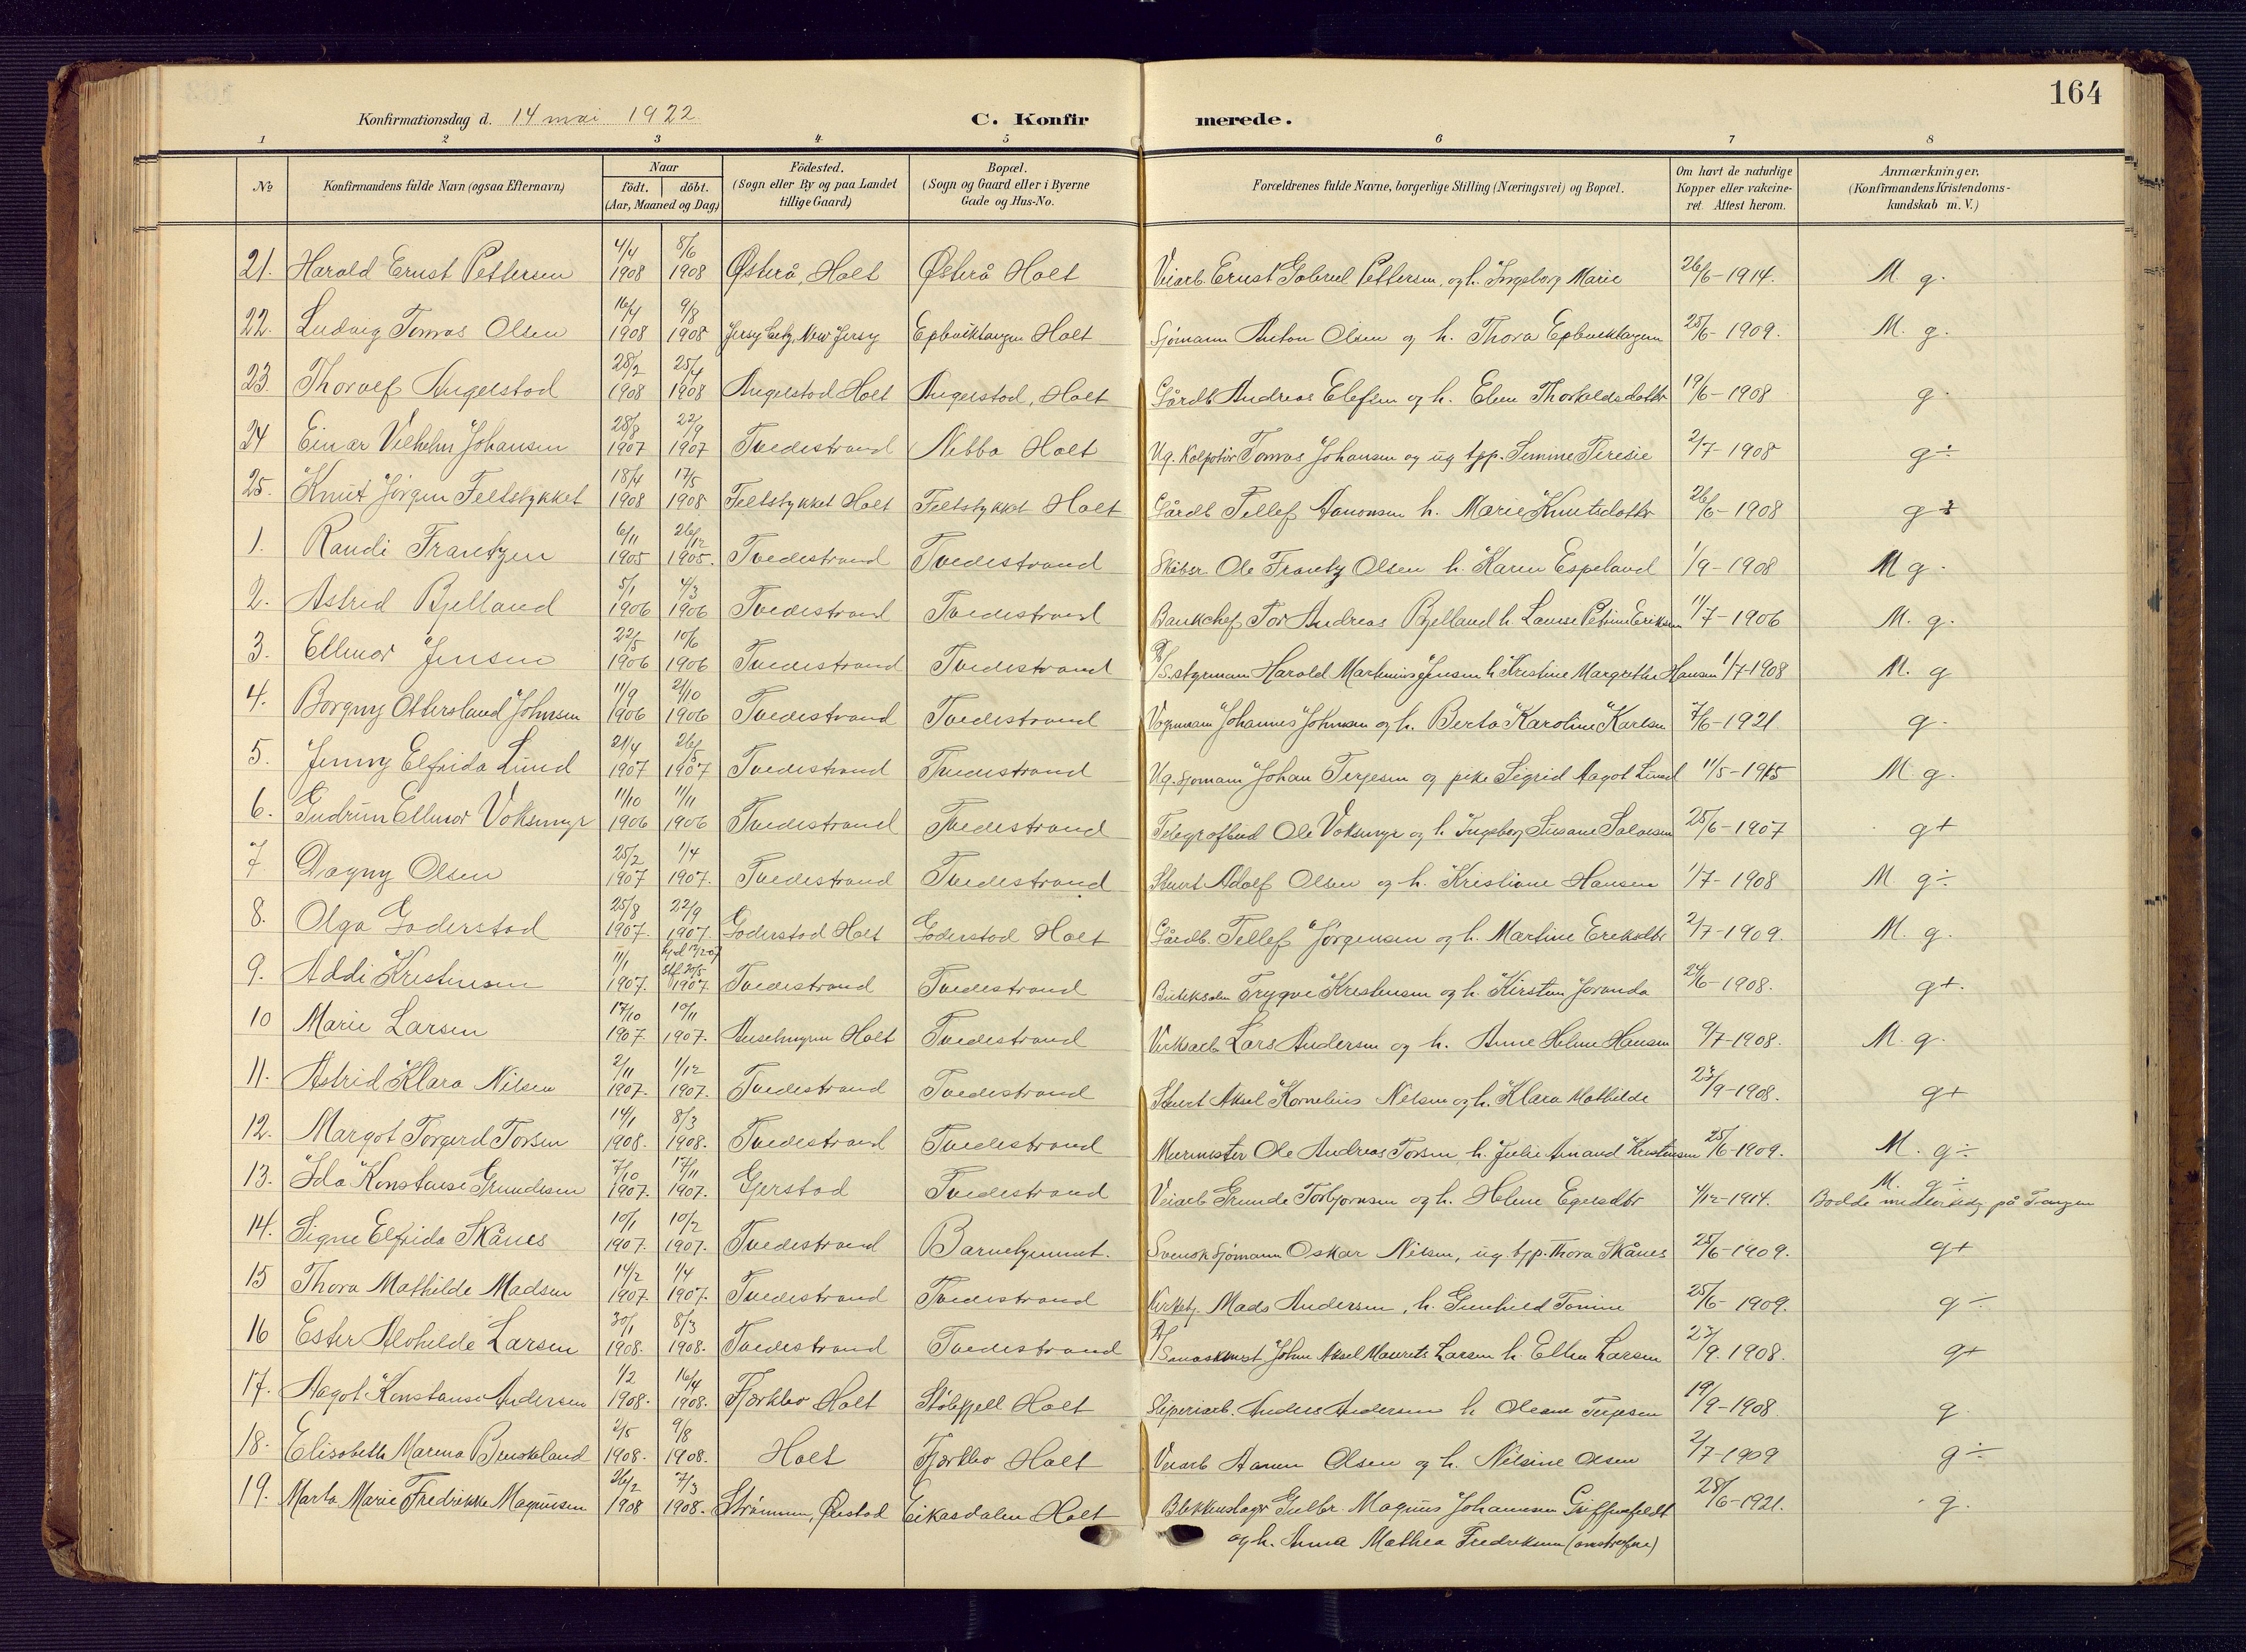 164
Konfirmationsdag d. 14 mai 1922
C. Konfirmerede.
1 2 3 4 5 6 7 8
№ Konfirmandens fulde Navn (ogsaa Efternavn) Naar født. døbt. (Aar, Maaned og Dag) Födested. (Sogn eller By og paa Landet tillige Gaard) Bopæl. (Sogn og Gaard eller i Byerne Gade og Hus-No. Forældrenes fulde Navne, borgerlige Stilling (Næringsvei) og Bopæl. Om havt de naturlige Kopper eller vakcineret. Attest herom. Anmærkninger. (Konfirmandens Kristendomskundskab m. V.)
21. Harald Ernst Pettersen 4/4 1908 8/6 1908 Østerå, Holt Østerå Holt Veiarb. Ernst Gabriel Pettersen, og h. Ingeborg Marie 26/6-1914. M. g.
22. Ludvig Tomas Olsen 16/4 1908 9/8 1908 Jersy City, New Jersy Holt Sjømann Anton Olsen og h. Thora 25/6-1909. M. g.
23. Thoralf Angelstad 28/2 1908 25/4 1908 Angelstad Holt Angelstad, Holt Gårdb. Andreas Elefsen og h. Elen Thorkeldsdatter 19/6-1908 g.
24 Einar Vilhelm Johansen 28/8 1907 22/9 1907 Tvedestrand Nebba Holt Ug. Kolportør Tomas Johansen og ug tpp. Simine Teresie 2/7-1908 g÷
25. Knut Jørgen Feltstykket 18/4 1908 17/5 1908 Feltstykket Holt Feltstykket Holt Gårdb Tellef Aanonsen h. Marie Knutsdatter 26/6-1908 g
1. Randi Frantzen 6/11 1905 26/12 1905. Tvedestrand Tvedestrand Skiber Ole Frantz Olsen h. Karen Espeland 1/9-1908 M g.
2. Astrid Bjelland 5/1 1906 4/3 1906 Tvedestrand Tvedestrand Bankchef Tor Andreas Bjelland h. Lawse Petrine Eriksen 11/7-1906 M. g.
3. Ellinor Jensen 22/5 1906 10/6 1906 Tvedestrand Tvedestrand D/S. styrmann Harald Martinius Jensen h. Kristine Margrethe Hansen 1/7-1908 M. g
4. Borgny Ottersland Johnsen 11/9 1906 21/10 1906 Tvedestrand Tvedestrand Vognmann Johannes Johnsen og h. Berta Karoline Karlsen 7/6-1921 g.
5. Jenny Elfrida Lund 21/4 1907 26/5 1907 Tvedestrand Tvedestrand Ug. sjømann Johan Terjesen og pike Sigrid Aagot Lund 11/5-1915 M. g.
6. Gudrun Ellinor Voksmyr 11/10 1906 11/11 1906 Tvedestrand Tvedestrand Telegrafbud Ole Voksmyr og h. Ingeborg Susane Salvesen 25/6-1907 g+
7 Dagny Olsen 25/2 1907 1/4 1907. Tvedestrand Tvedestrand Stuert Adolf Olsen og h. Kristiane Hansen 1/7-1908 M. g÷
8. Olga Goderstad 25/8 1907. 22/9 1907. Goderstad Holt Goderstad Holt Gårdb. Tellef Jørgensen og h. Martine Eriksdtr 2/7-1909. M. g.
9. Addi Kristensen 11/1 1907. 1907. Tvedestrand Tvedestrand Trygve Kristensen og h. Kirsten Joranda 24/6-1908. g+.
10 Marie Larsen 17/10 1907. 10/11 1907. Holt Tvedestrand Verksarb. Lars Andersen og h. Anne Helene Hansen 9/7-1908. M. g.
11. Astrid Klara Nilsen 2/11 1907. 1/12 1907. Tvedestrand Tvedestrand Stuert Aksel Kornelius Nilsen og h. Klara Mathilde 23/9-1908. g+
12. Margot Torgerd Torsen 14/1 1908. 8/3 1908. Tvedestrand Tvedestrand Murmester Ole Andreas Torsen h. Julie Amand Kristensen 25/6-1909. M. g÷
13. Ida Konstanse Grundesen 7/10 1907. 17/11 1907. Gjerstad Tvedestrand Veiarb Grunde Torbjørnsen og h. Helene Egersdtr 4/12-1914. M. g÷ Bodde midlertidig på Trangen
14. Signe Elfrida Skånes 10/1 1907. 10/2 1907. Tvedestrand Barnehjemmet. Svensk sjømann Oskar Nilsen, ug. tpp. Thora Skånes 25/6-1909. g+
15 Thora Mathilde Madsen 14/2 1907. 1/4 1907. Tvedestrand Tvedestrand Kirketj. Mads Andersen, h. Gunhild Tomine 25/6-1909. g÷
16 Ester Alvhilde Larsen 30/1 1908. 8/3 1908. Tvedestrand Tvedestrand John Aksel Maurits Larsen h. Ellen Larsen 23/9.1908. g+
17. Aagot Konstanse Andersen 1/2 1908. 16/4 1908. Fjærkleo Holt Stølefjell Holt Sliperiarb. Anders Andersen h. Oleane Terjesen 19/9-1908 g
18. Elisabeth Marena Bruskeland 2/5 1908. 9/8 1908. Holt Fjærkleo Holt Veiarb Aanen Olsen og h. Nilsine Olsen 2/7-1909 g÷
19. Marta Marie Fredrikke Magnussen 26/2 1908 7/3 1908. Strømmen, Øiestad Eikasdalen Holt Blikkenslager Gulbr. Magnus Johannesen Griffenfeldt 28/6-1921. g.
og h. Anna Mathea Fredriksen (omstreifere)